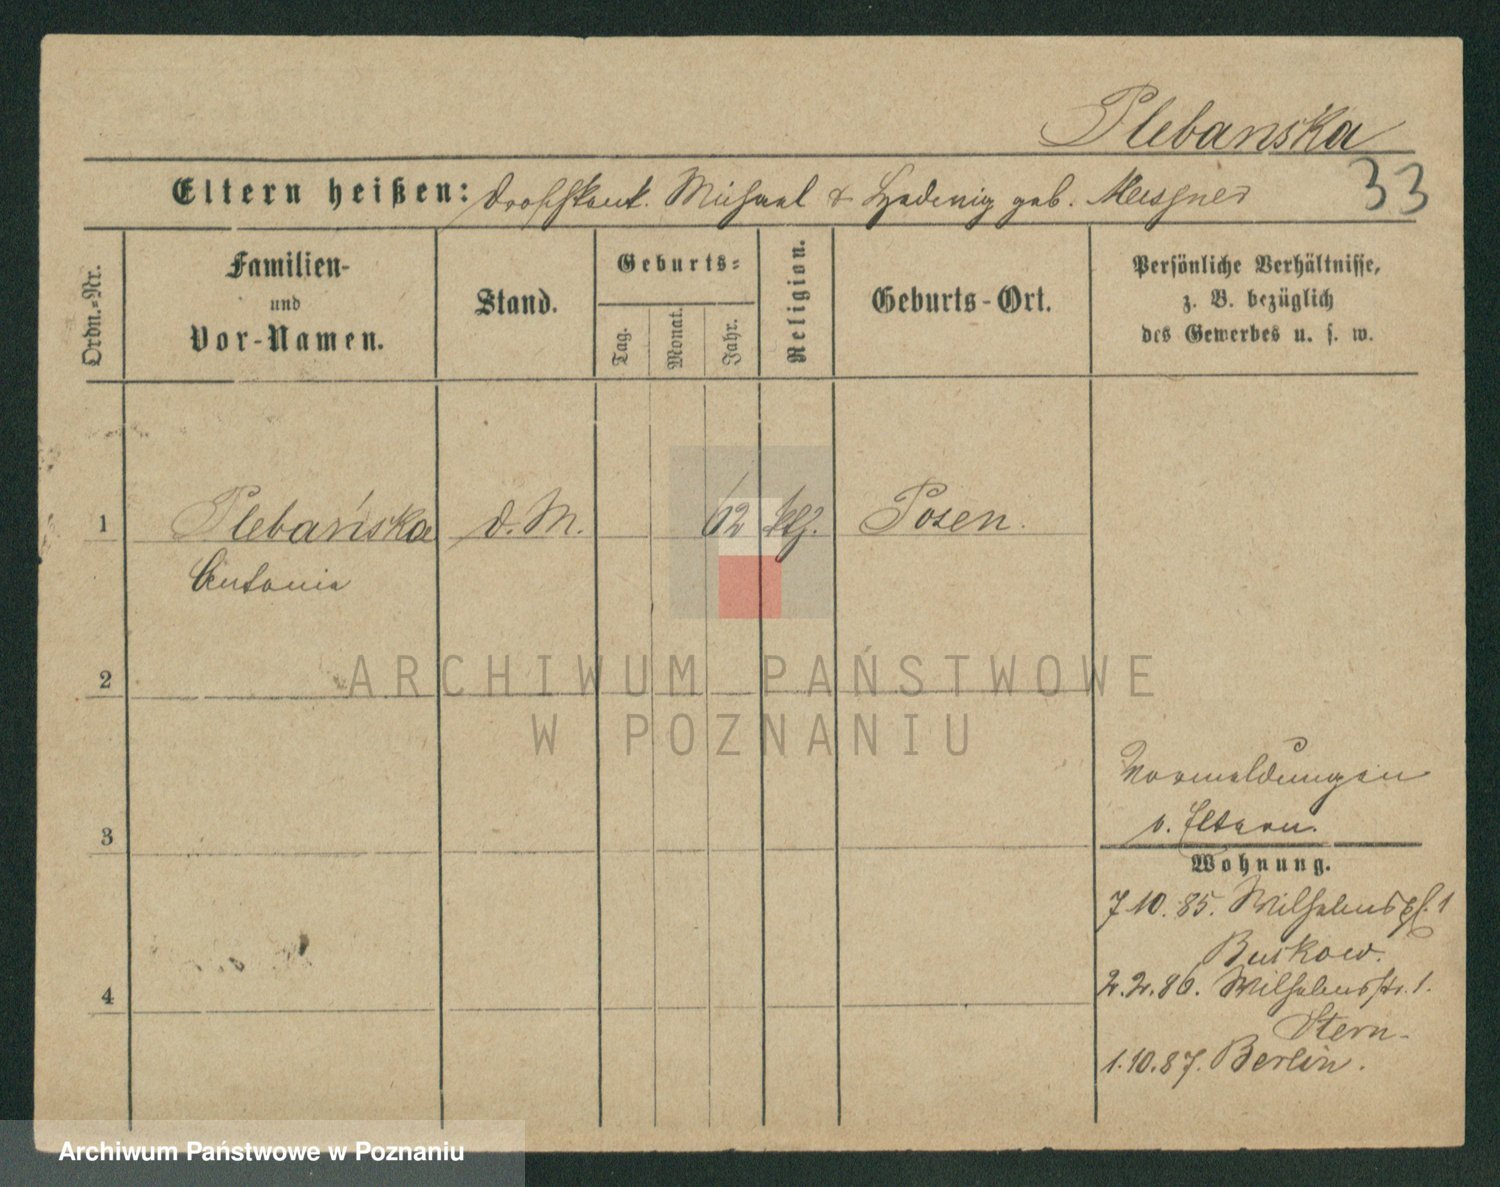 Plebanska
Eltern heißen: Droschkenk. Michael & Hedwig geb. Meisgner
33
Ordn.-Nr.
Familien-
und
Vor-Namen.
Stand.
Geburts-
Tag.
Monat.
Jahr.
Religion.
Geburts-Ort.
Persönliche Verhältnisse,
z. B. bezüglich
des Gewerbes u. s. w.
1 Plebańska D. M. 62 kth. Posen.
Antonie
2
ARCHIWUM PAŃSTWOWE
W POZNANIU
Vormeldungen
b. Eltern.
3
Wohnung.
7.10.85. Wilhelmspl. 1
Buskow.
4
2.2.86. Wilhelmsstr. 1.
Stern.
1.10.87. Berlin.
Archiwum Państwowe w Poznaniu